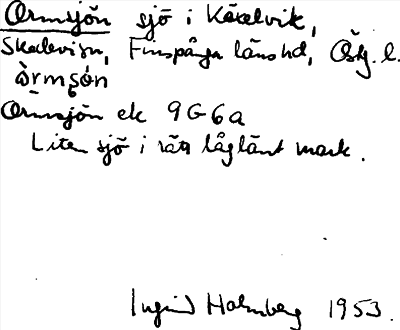 Ormsjön sjö i Käxelvik,
Skedevi sn, Finspånga läns hd, Östg. l.
òrmsón
Ormsjön ek 9G6a
Liten sjö i rätt låglänt mark.
Ingrid Holmberg 1953.